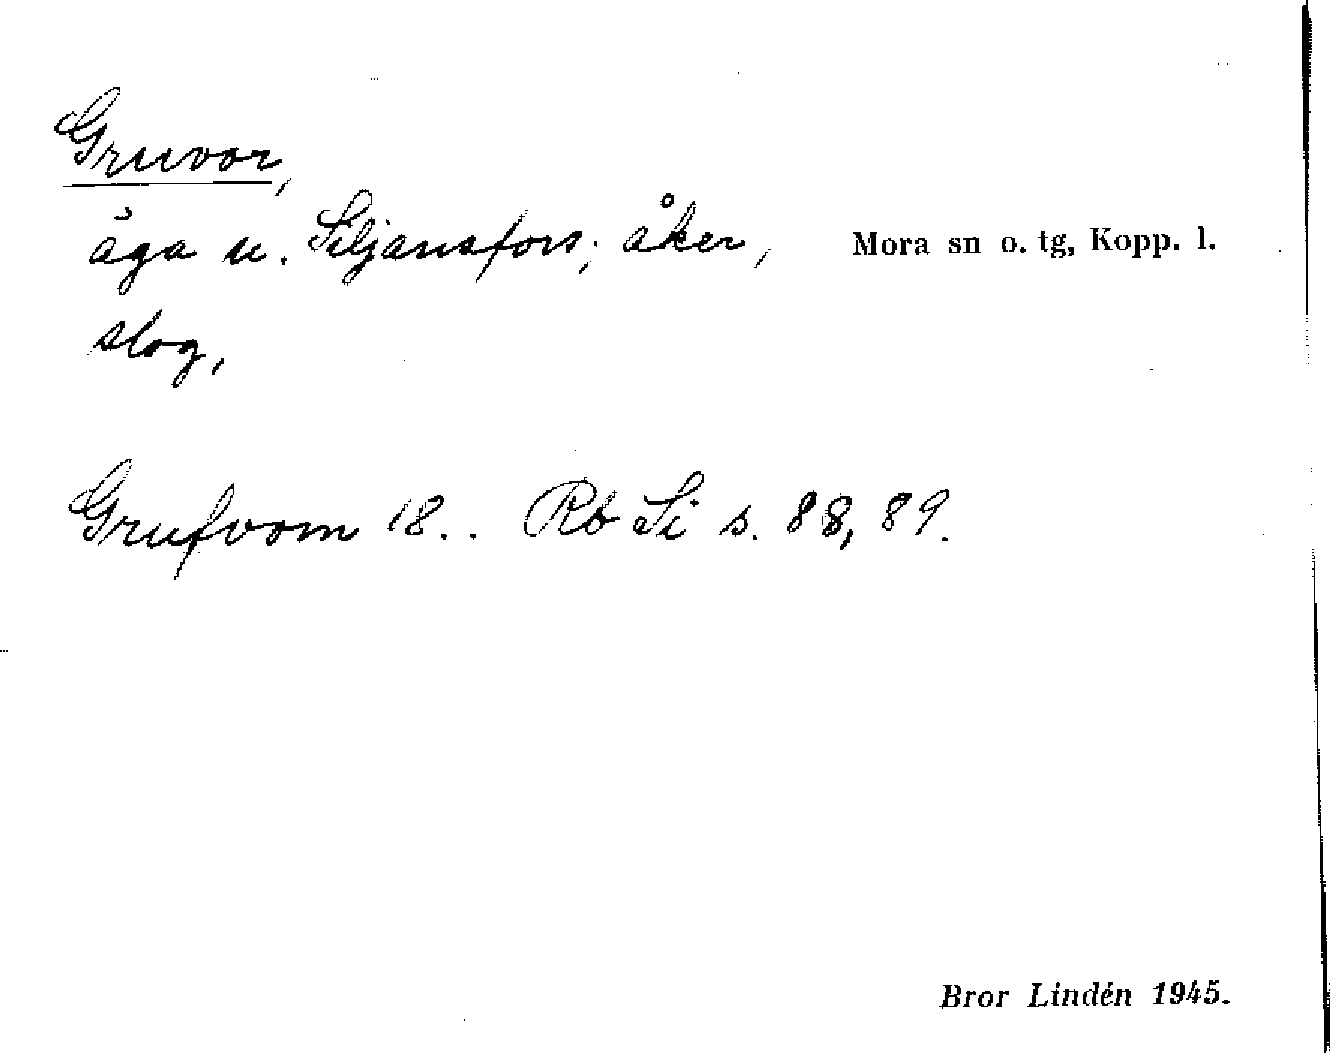 Gruvor,
äga u. Siljansfors; åker, Mora sn o. tg, Kopp. l.
slog,
Grufvorn 18.. Rb Si s. 88, 89.
Bror Lindén 1945.